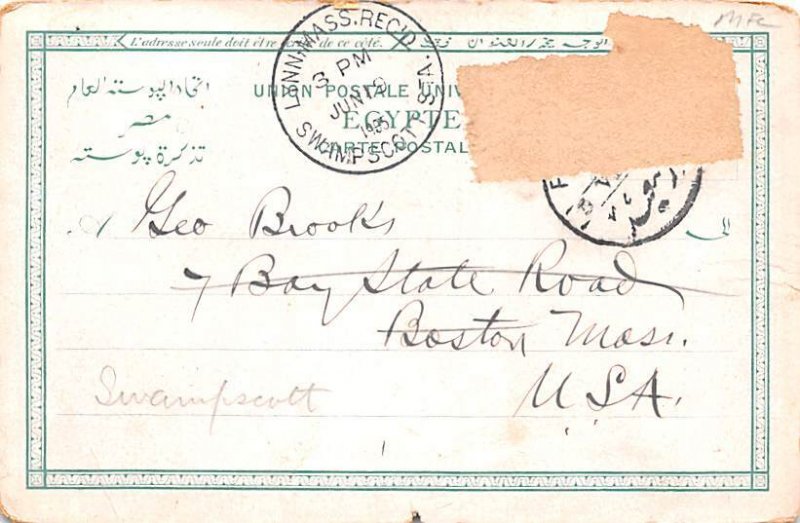 MFC
L'adresse seule doit être de ce côté.
LYNN, MASS. REC'D.
3 PM
JUN 10
1905
SWAMPSCOTT STA.
اتحاد البوسته العام
مصر
تذكرة بوسته
UNION POSTALE UNIV
EGYPTE
CARTE POSTAL
A Geo Brooks الى
7 Bay State Road
Boston Mass.
Swampscott
U.S.A.